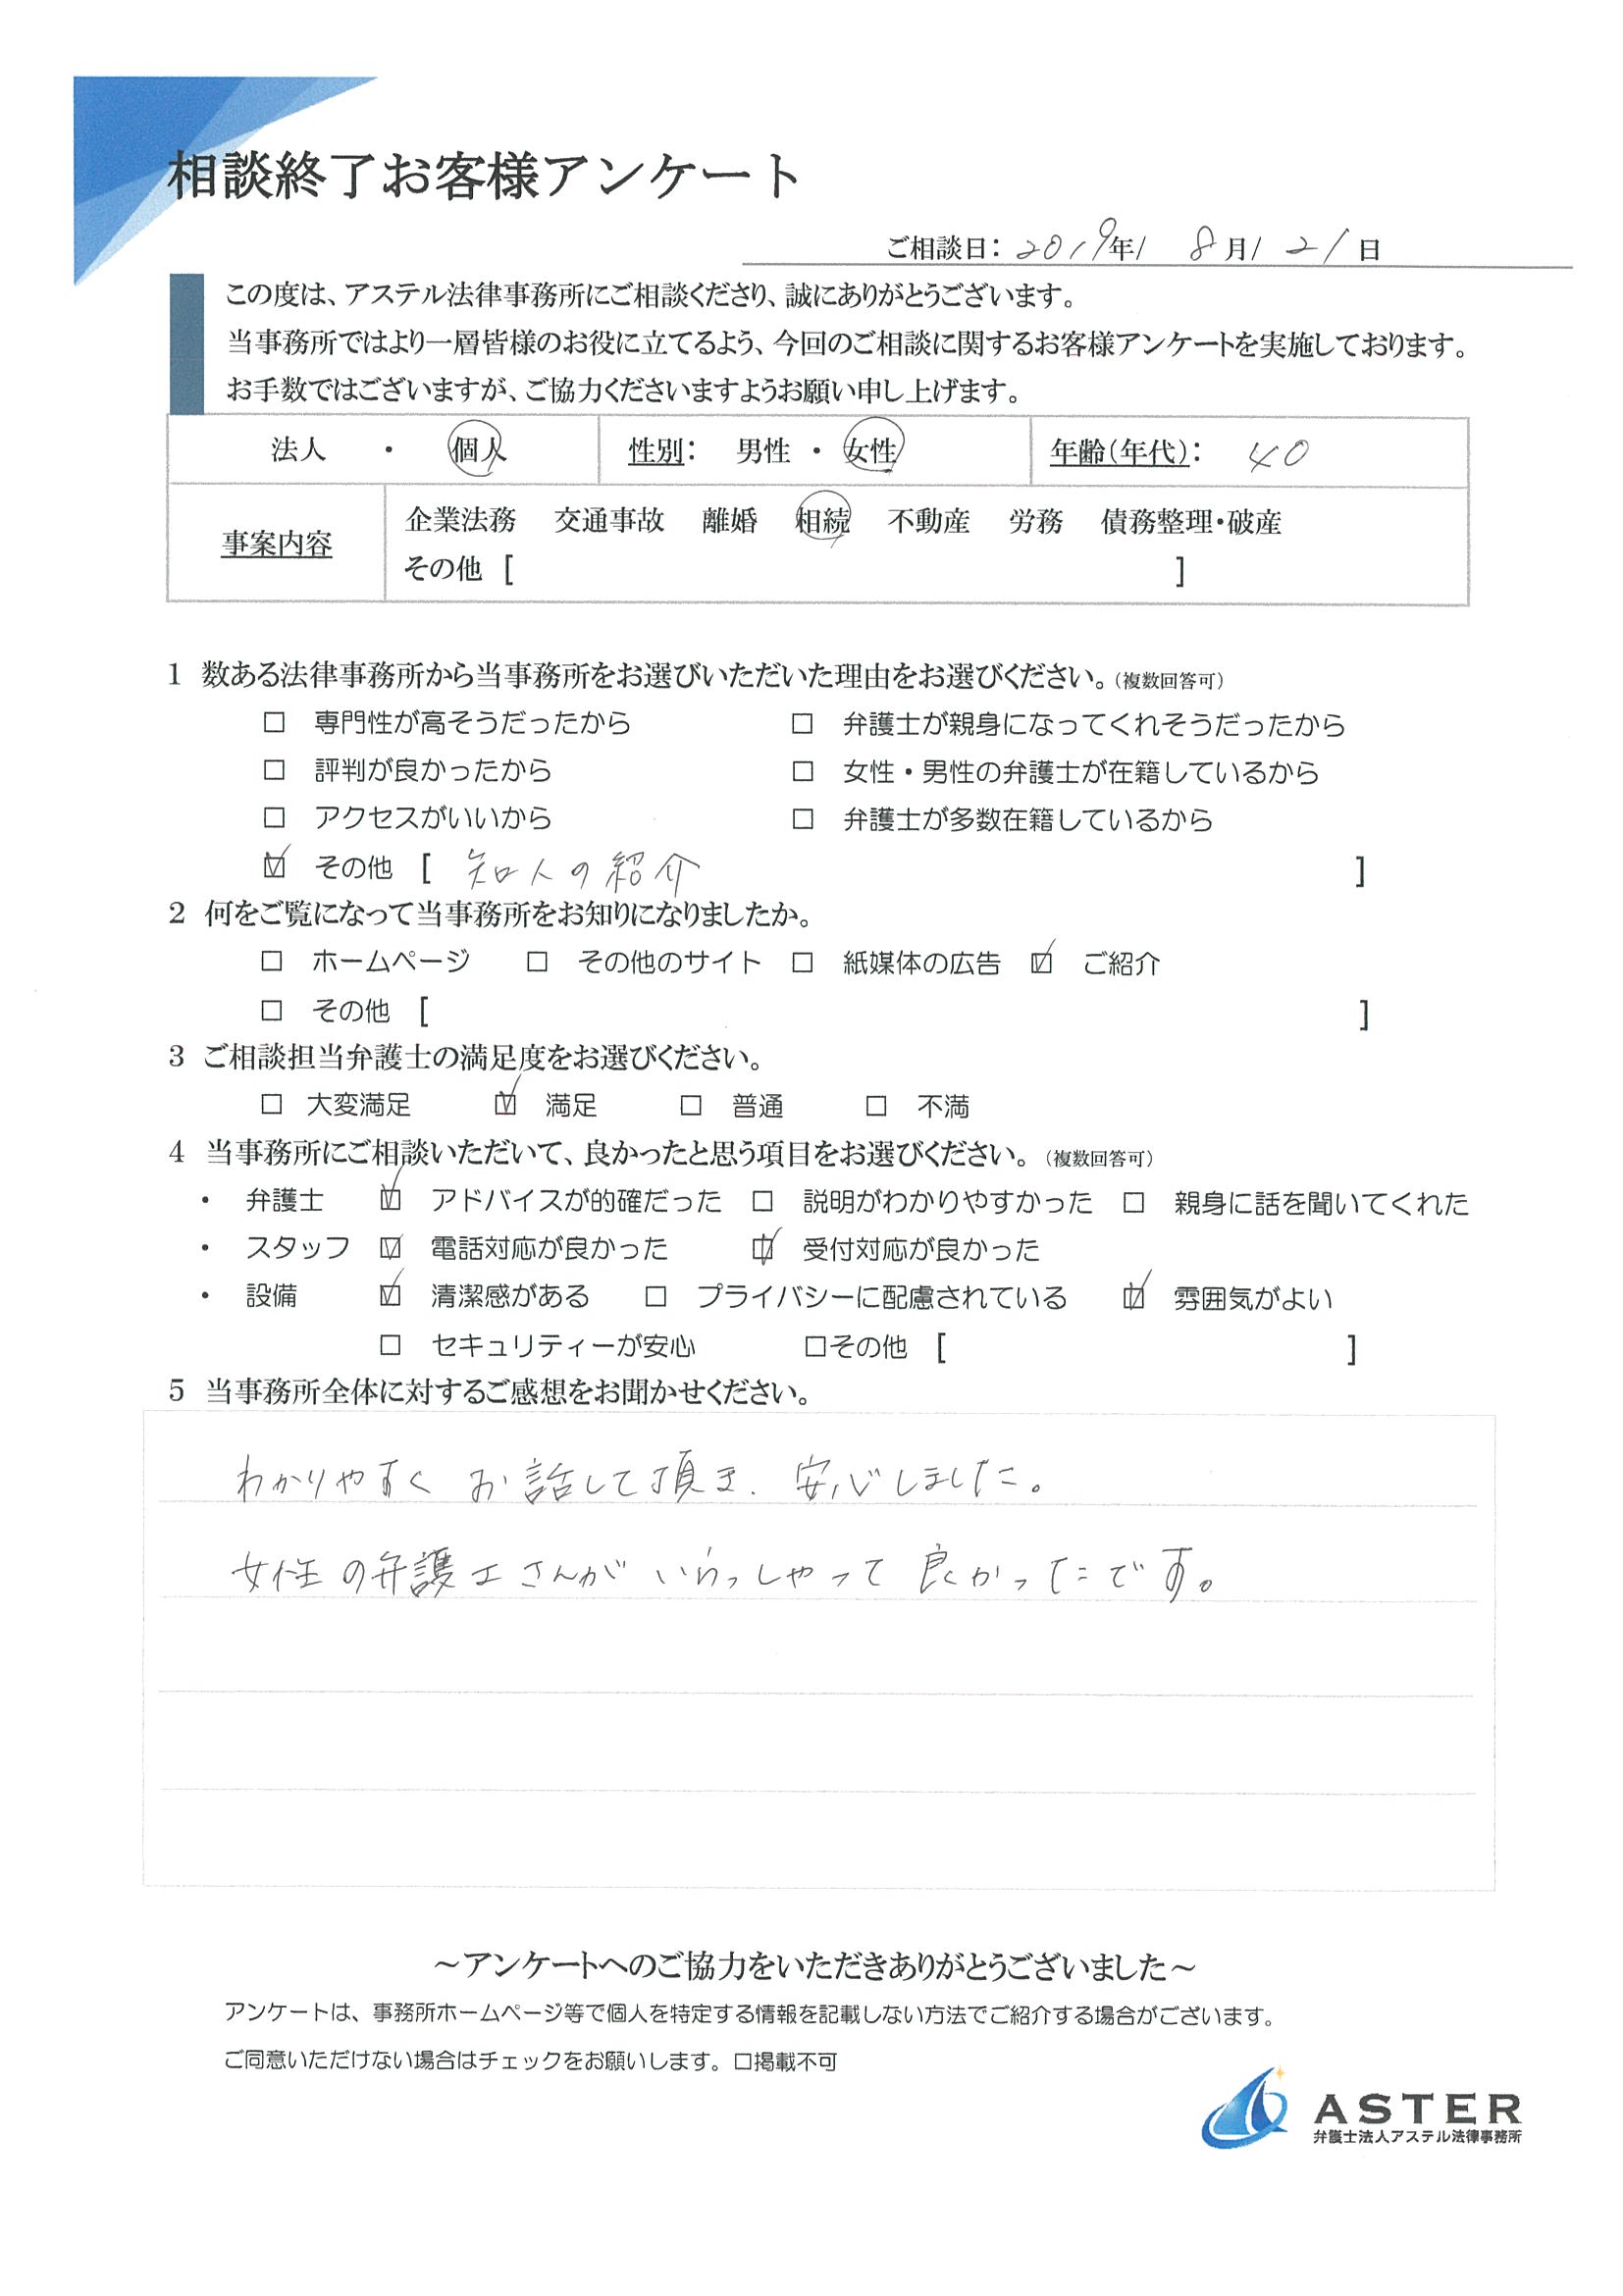 相談終了お客様アンケート
ご相談日： 2019年/ 8月/ 21日
この度は、アステル法律事務所にご相談くださり、誠にありがとうございます。
当事務所ではより一層皆様のお役に立てるよう、今回のご相談に関するお客様アンケートを実施しております。
お手数ではございますが、ご協力くださいますようお願い申し上げます。
法人 ・ 個人 性別： 男性 ・ 女性 年齢（年代）： 40
事案内容 企業法務 交通事故 離婚 相続 不動産 労務 債務整理・破産
その他 [ ]
1 数ある法律事務所から当事務所をお選びいただいた理由をお選びください。（複数回答可）
□ 専門性が高そうだったから □ 弁護士が親身になってくれそうだったから
□ 評判が良かったから □ 女性・男性の弁護士が在籍しているから
□ アクセスがいいから □ 弁護士が多数在籍しているから
☑ その他 [ 知人の紹介 ]
2 何をご覧になって当事務所をお知りになりましたか。
□ ホームページ □ その他のサイト □ 紙媒体の広告 ☑ ご紹介
□ その他 [ ]
3 ご相談担当弁護士の満足度をお選びください。
□ 大変満足 ☑ 満足 □ 普通 □ 不満
4 当事務所にご相談いただいて、良かったと思う項目をお選びください。（複数回答可）
・ 弁護士 ☑ アドバイスが的確だった □ 説明がわかりやすかった □ 親身に話を聞いてくれた
・ スタッフ ☑ 電話対応が良かった ☑ 受付対応が良かった
・ 設備 ☑ 清潔感がある □ プライバシーに配慮されている ☑ 雰囲気がよい
□ セキュリティーが安心 □その他 [ ]
5 当事務所全体に対するご感想をお聞かせください。
わかりやすく お話して頂き、安心しました。
女性の弁護士さんが いらっしゃって 良かったです。
～アンケートへのご協力をいただきありがとうございました～
アンケートは、事務所ホームページ等で個人を特定する情報を記載しない方法でご紹介する場合がございます。
ご同意いただけない場合はチェックをお願いします。□掲載不可
ASTER
弁護士法人アステル法律事務所